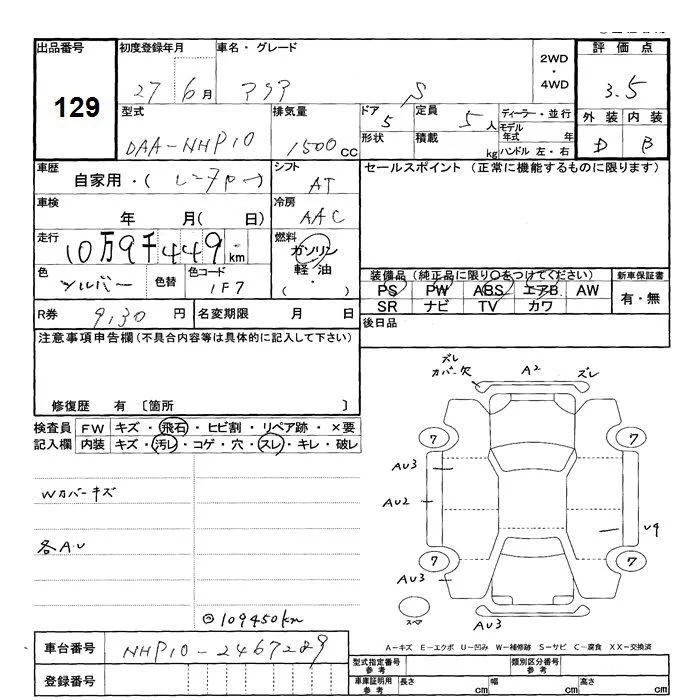 出品番号
129
初度登録年月
27 6月
車名・グレード
アクア S
2WD
・
4WD
評価点
3.5
外装 内装
D B
型式
DAA-NHP10
排気量
1500cc
ドア
5
形状
定員
5人
積載
kg
ディーラー・並行
モデル年式 年
ハンドル 左・右
車歴
自家用・(レンタカー)
シフト
AT
車検
年 月( 日)
冷房
AAC
走行
10万9千449km
燃料
ガソリン
軽油
・
( )
色
シルバー
色替
色コード
1F7
R券
9,130円
名変期限 月 日
セールスポイント(正常に機能するものに限ります)
装備品(純正品に限り○をつけてください)
PS PW ABS エアB AW
SR ナビ TV カワ
新車保証書
有・無
後日品
注意事項申告欄(不具合内容等は具体的に記入して下さい)
修復歴 有 〔箇所 〕
検査員
記入欄
FW キズ・飛石・ヒビ割・リペア跡・×要
内装 キズ・汚レ・コゲ・穴・スレ・キレ・破レ
Wカバーキズ
各AU
◎109450km
ズレ
カバー欠
A2
ズレ
7
7
AU3
AU2
U9
7
7
AU3
スペア
AU3
A-キズ E-エクボ U-凹み W-補修跡 S-サビ C-腐食 XX-交換済
車台番号
NHP10-2467289
登録番号
型式指定番号
参考
類別区分番号
参考
車庫証明用
参考
長さ cm
幅 cm
高さ cm